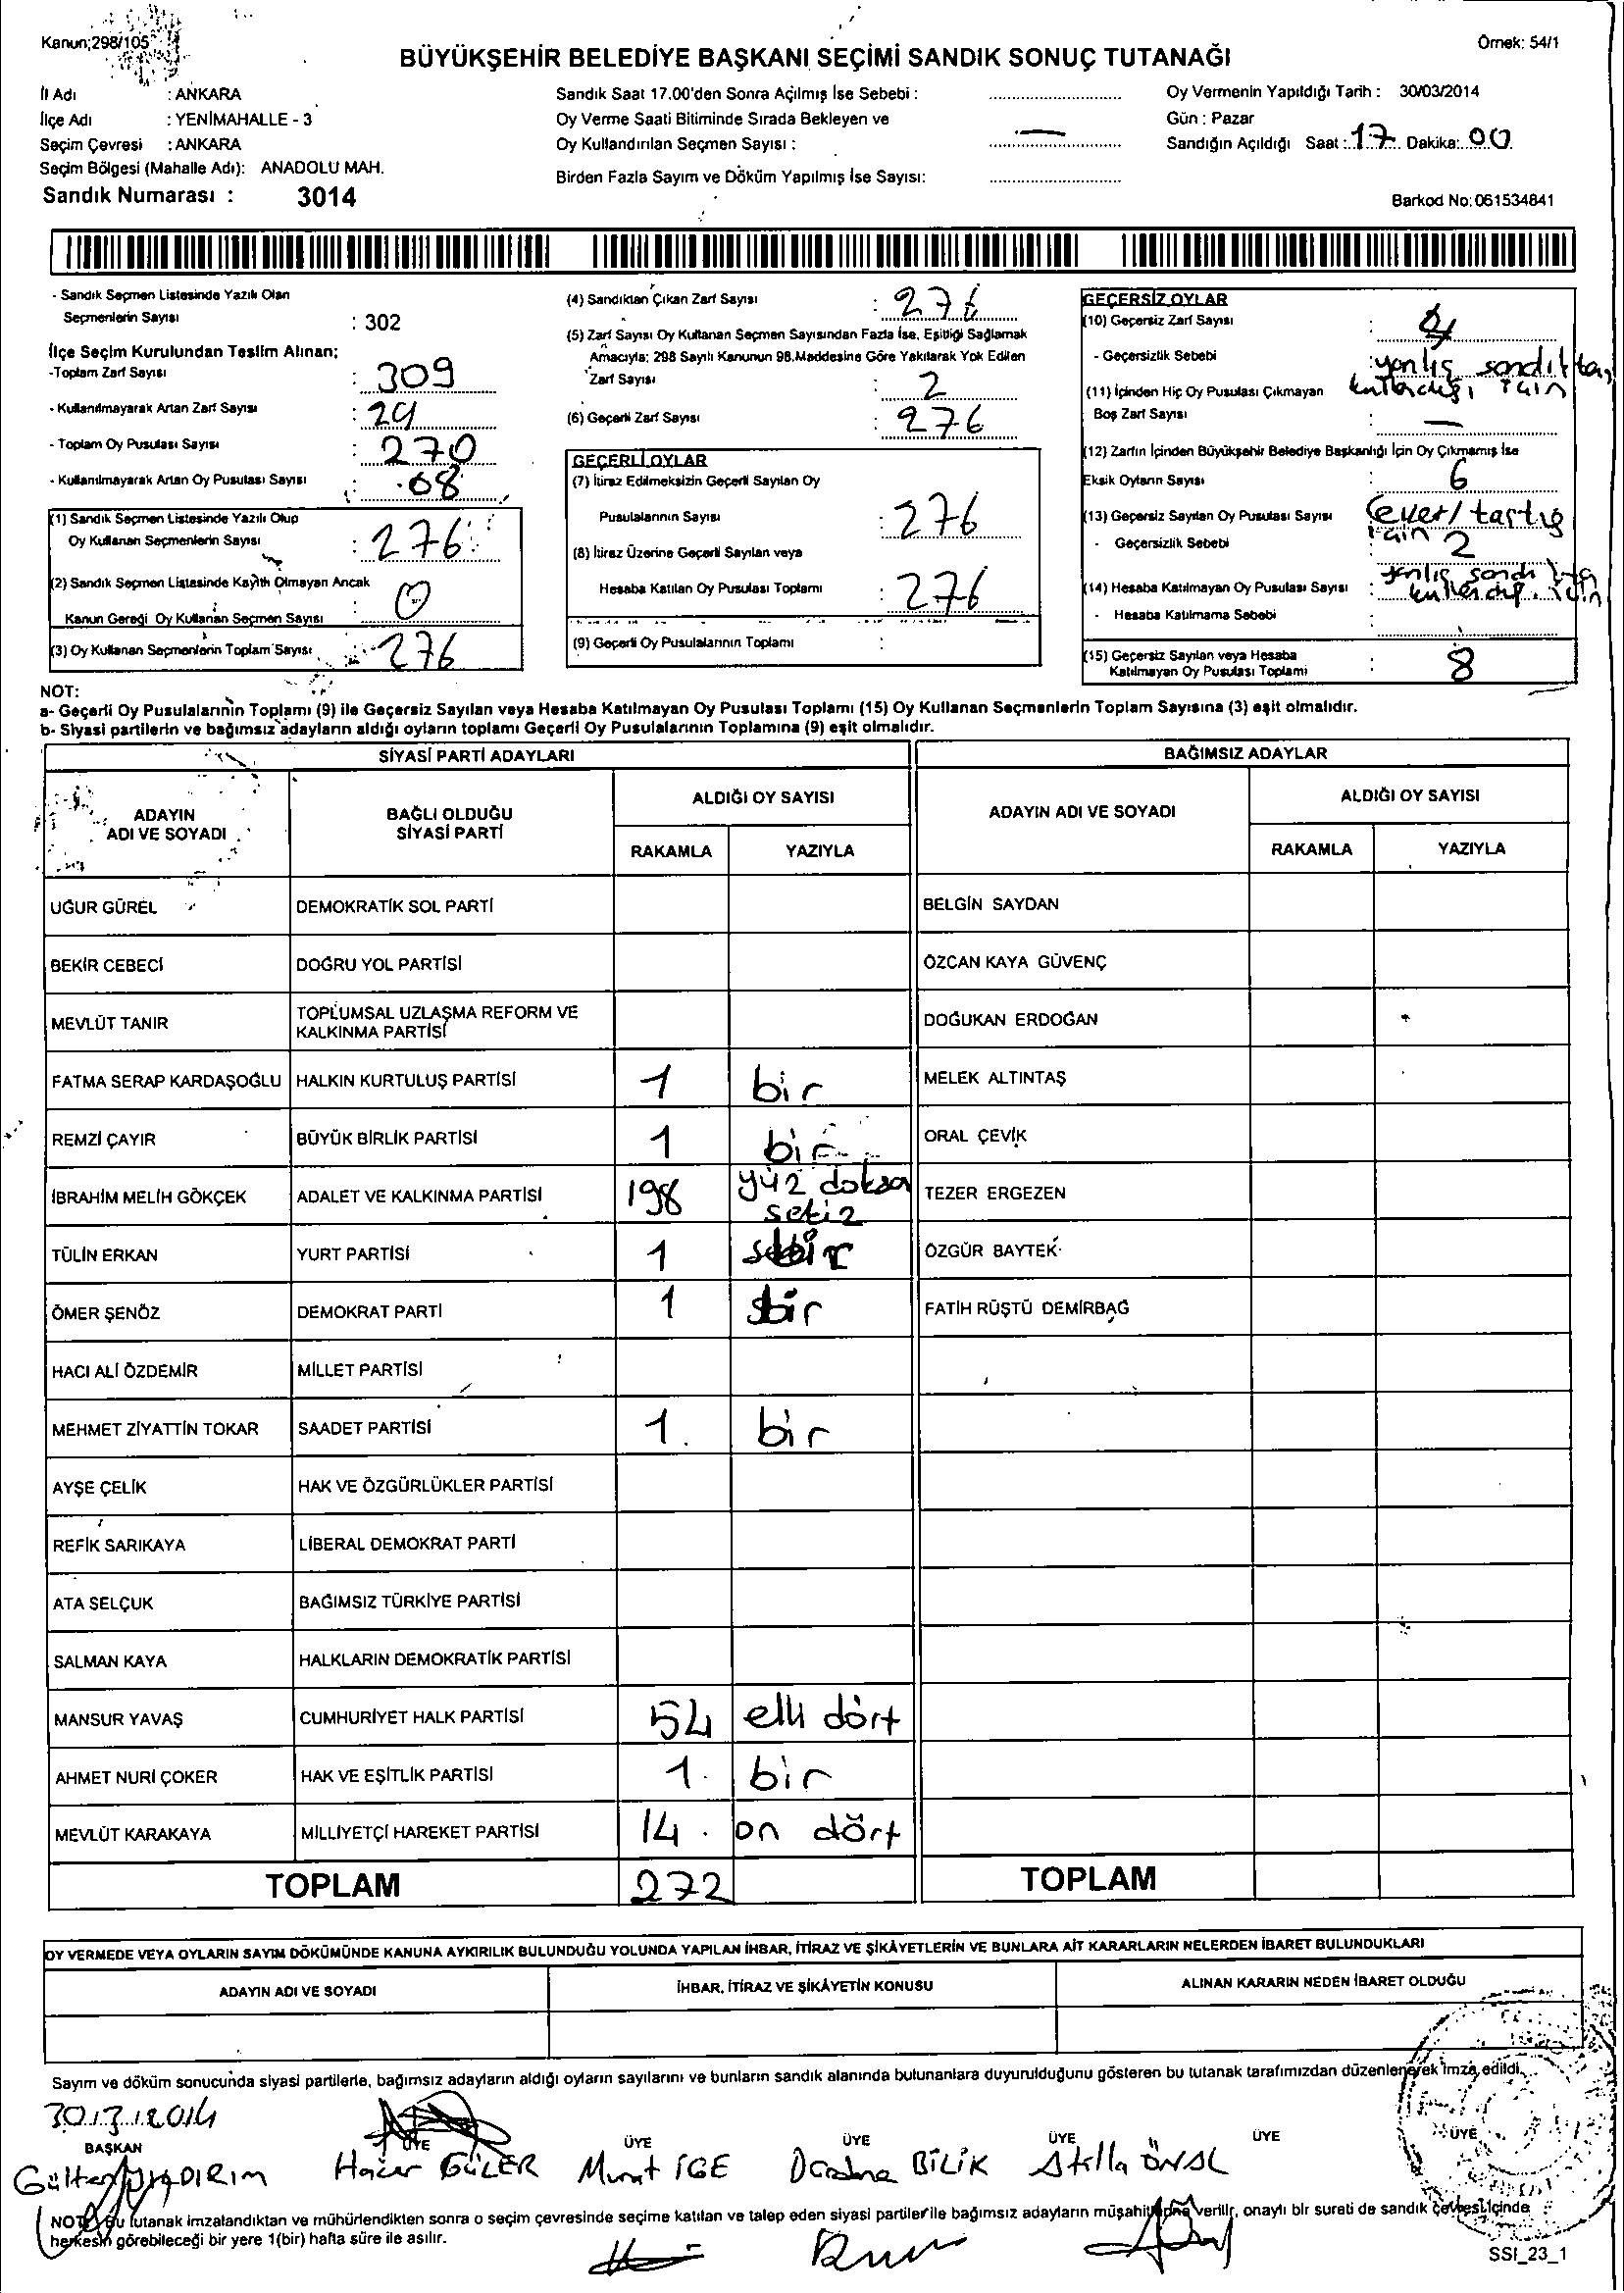 Kanun;298/105
Örnek: 54/1
BÜYÜKŞEHİR BELEDİYE BAŞKANI SEÇİMİ SANDIK SONUÇ TUTANAĞI
İl Adı : ANKARA
İlçe Adı : YENİMAHALLE - 3
Seçim Çevresi : ANKARA
Seçim Bölgesi (Mahalle Adı): ANADOLU MAH.
Sandık Numarası : 3014
Sandık Saat 17.00'den Sonra Açılmış İse Sebebi :
Oy Verme Saati Bitiminde Sırada Bekleyen ve
Oy Kullandırılan Seçmen Sayısı : —
Birden Fazla Sayım ve Döküm Yapılmış İse Sayısı:
Oy Vermenin Yapıldığı Tarih : 30/03/2014
Gün : Pazar
Sandığın Açıldığı Saat : 17 Dakika: 00
Barkod No: 061534841
- Sandık Seçmen Listesinde Yazılı Olan
Seçmenlerin Sayısı : 302
İlçe Seçim Kurulundan Teslim Alınan;
-Toplam Zarf Sayısı : 309
- Kullanılmayarak Artan Zarf Sayısı : 29
- Toplam Oy Pusulası Sayısı : 270
- Kullanılmayarak Artan Oy Pusulası Sayısı : 08
(1) Sandık Seçmen Listesinde Yazılı Olup
Oy Kullanan Seçmenlerin Sayısı : 276
(2) Sandık Seçmen Listesinde Kayıtlı Olmayan Ancak
Kanun Gereği Oy Kullanan Seçmen Sayısı : 0
(3) Oy Kullanan Seçmenlerin Toplam Sayısı : 276
(4) Sandıktan Çıkan Zarf Sayısı : 276
(5) Zarf Sayısı Oy Kullanan Seçmen Sayısından Fazla İse, Eşitliği Sağlamak
Amacıyla; 298 Sayılı Kanunun 98.Maddesine Göre Yakılarak Yok Edilen
Zarf Sayısı : 2
(6) Geçerli Zarf Sayısı : 276
GEÇERLİ OYLAR
(7) İtiraz Edilmeksizin Geçerli Sayılan Oy
Pusulalarının Sayısı : 276
(8) İtiraz Üzerine Geçerli Sayılan veya
Hesaba Katılan Oy Pusulası Toplamı : 276
(9) Geçerli Oy Pusulalarının Toplamı :
GEÇERSİZ OYLAR
(10) Geçersiz Zarf Sayısı :
- Geçersizlik Sebebi : yanlış sandıkta
kullandığı için
(11) İçinden Hiç Oy Pusulası Çıkmayan
Boş Zarf Sayısı : —
(12) Zarfın İçinden Büyükşehir Belediye Başkanlığı İçin Oy Çıkmamış İse
Eksik Oyların Sayısı : 6
(13) Geçersiz Sayılan Oy Pusulası Sayısı
- Geçersizlik Sebebi için 2
(14) Hesaba Katılmayan Oy Pusulası Sayısı : yanlış sandıkta
- Hesaba Katılmama Sebebi : için
(15) Geçersiz Sayılan veya Hesaba
Katılmayan Oy Pusulası Toplamı : 8
NOT:
a- Geçerli Oy Pusulalarının Toplamı (9) ile Geçersiz Sayılan veya Hesaba Katılmayan Oy Pusulası Toplamı (15) Oy Kullanan Seçmenlerin Toplam Sayısına (3) eşit olmalıdır.
b- Siyasi partilerin ve bağımsız adayların aldığı oyların toplamı Geçerli Oy Pusulalarının Toplamına (9) eşit olmalıdır.
SİYASİ PARTİ ADAYLARI BAĞIMSIZ ADAYLAR
ADAYIN ADI VE SOYADI BAĞLI OLDUĞU SİYASİ PARTİ ALDIĞI OY SAYISI ADAYIN ADI VE SOYADI ALDIĞI OY SAYISI
RAKAMLA YAZIYLA RAKAMLA YAZIYLA
UĞUR GÜREL DEMOKRATİK SOL PARTİ BELGİN SAYDAN
BEKİR CEBECİ DOĞRU YOL PARTİSİ ÖZCAN KAYA GÜVENÇ
MEVLÜT TANIR TOPLUMSAL UZLAŞMA REFORM VE KALKINMA PARTİSİ DOĞUKAN ERDOĞAN
FATMA SERAP KARDAŞOĞLU HALKIN KURTULUŞ PARTİSİ 1 bir MELEK ALTINTAŞ
REMZİ ÇAYIR BÜYÜK BİRLİK PARTİSİ 1 bir ORAL ÇEVİK
İBRAHİM MELİH GÖKÇEK ADALET VE KALKINMA PARTİSİ 198 yüz doksan sekiz TEZER ERGEZEN
TÜLİN ERKAN YURT PARTİSİ 1 bir ÖZGÜR BAYTEK
ÖMER ŞENÖZ DEMOKRAT PARTİ 1 bir FATİH RÜŞTÜ DEMİRBAĞ
HACI ALİ ÖZDEMİR MİLLET PARTİSİ
MEHMET ZİYATTİN TOKAR SAADET PARTİSİ 1 bir
AYŞE ÇELİK HAK VE ÖZGÜRLÜKLER PARTİSİ
REFİK SARIKAYA LİBERAL DEMOKRAT PARTİ
ATA SELÇUK BAĞIMSIZ TÜRKİYE PARTİSİ
SALMAN KAYA HALKLARIN DEMOKRATİK PARTİSİ
MANSUR YAVAŞ CUMHURİYET HALK PARTİSİ 54 elli dört
AHMET NURİ ÇOKER HAK VE EŞİTLİK PARTİSİ 1 bir
MEVLÜT KARAKAYA MİLLİYETÇİ HAREKET PARTİSİ 14 on dört
TOPLAM 272 TOPLAM
OY VERMEDE VEYA OYLARIN SAYIM DÖKÜMÜNDE KANUNA AYKIRILIK BULUNDUĞU YOLUNDA YAPILAN İHBAR, İTİRAZ VE ŞİKAYETLERİN VE BUNLARA AİT KARARLARIN NELERDEN İBARET BULUNDUKLARI
ADAYIN ADI VE SOYADI İHBAR, İTİRAZ VE ŞİKAYETİN KONUSU ALINAN KARARIN NEDEN İBARET OLDUĞU
Sayım ve döküm sonucunda siyasi partilerle, bağımsız adayların aldığı oyların sayılarını ve bunların sandık alanında bulunanlara duyurulduğunu gösteren bu tutanak tarafımızdan düzenlenerek imza edildi.
30/3/2014
BAŞKAN ÜYE ÜYE ÜYE ÜYE ÜYE ÜYE
Gülten YILDIRIM Hacer GÜLER Murat İGE BİLİK Atilla ÖNAL
NOT: Bu tutanak imzalandıktan ve mühürlendikten sonra o seçim çevresinde seçime katılan ve talep eden siyasi partiler ile bağımsız adayların müşahitlerine verilir, onaylı bir sureti de sandık çevresi içinde
herkesin görebileceği bir yere 1(bir) hafta süre ile asılır.
SSI_23_1